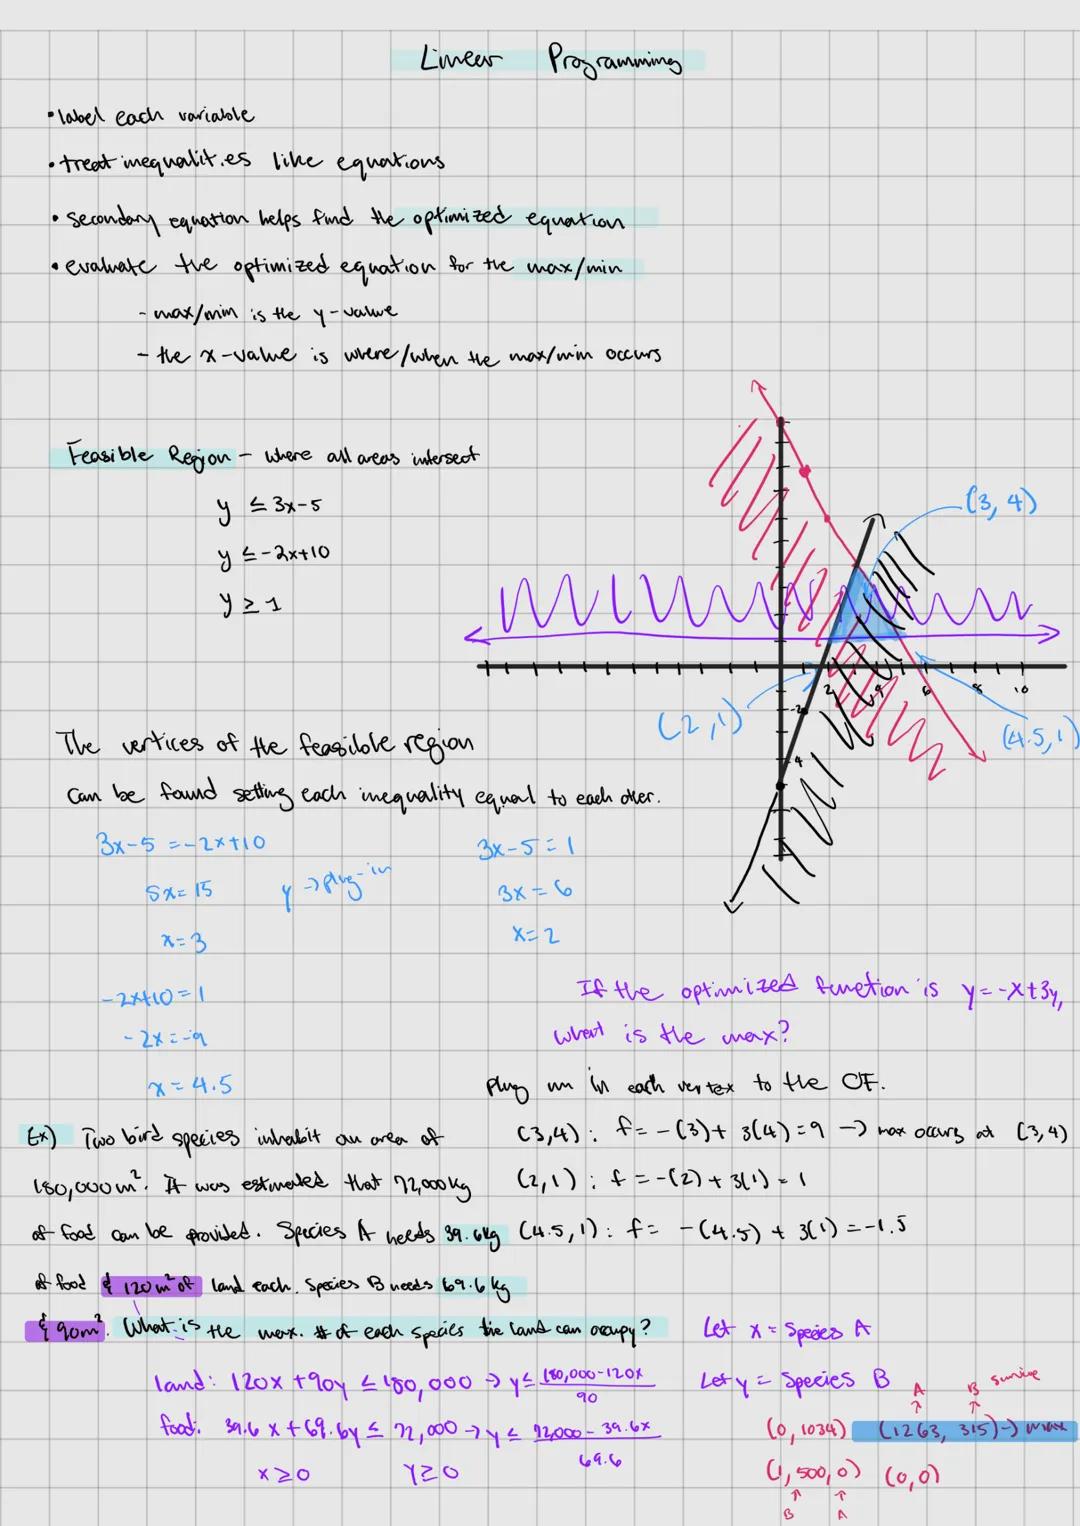 Linear Programming
• label each variable
• treat inequalities like equations
• secondary equation helps find the optimized equation
• evaluate the optimized equation for the max/min
- max/min is the y-value
- the x-value is where/when the max/min occurs
Feasible Region - where all areas intersect
y ≤ 3x-5
y ≤ -2x+10
y ≥ 1
(3, 4)
(2,1)
(4.5,1)
2 4 6 8 10
-2
4
The vertices of the feasible region
can be found setting each inequality equal to each other.
3x-5 = -2x+10
5x = 15
y → plug-in
x = 3
3x-5 = 1
3x = 6
x = 2
-2x+10 = 1
-2x = -9
x = 4.5
If the optimized function is y = -x+3y,
what is the max?
plug in each vertex to the OF.
(3,4): f = -(3) + 3(4) = 9 → max occurs at (3,4)
(2,1): f = -(2) + 3(1) = 1
(4.5,1): f = -(4.5) + 3(1) = -1.5
Ex) Two bird species inhabit an area of
180,000 m². It was estimated that 72,000 kg
of food can be provided. Species A needs 39.6kg
of food & 120m² of land each. Species B needs 69.6 kg
& 90m². What is the max. # of each species the land can occupy?
land: 120x + 90y ≤ 180,000 → y ≤ 180,000-120x / 90
food: 39.6x + 69.6y ≤ 72,000 → y ≤ 72,000 - 39.6x / 69.6
x ≥ 0 y ≥ 0
Let x = Species A
Let y = Species B
A B survive
(0, 1034) (1263, 315) → max
(1,500,0) (0,0)
B A